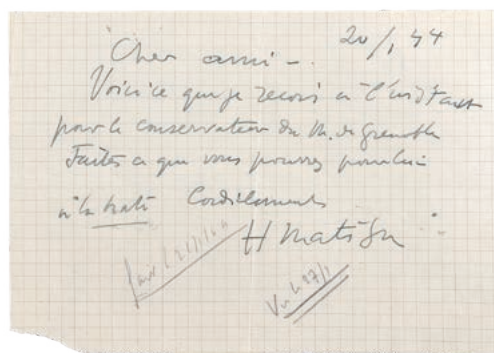 20/1 44
Cher ami -
Voici ce que je reçois à l'instant
pour le conservateur du M. de Grenoble
Faites ce que vous pourrez pour lui
à la hâte Cordialement
H Matisse